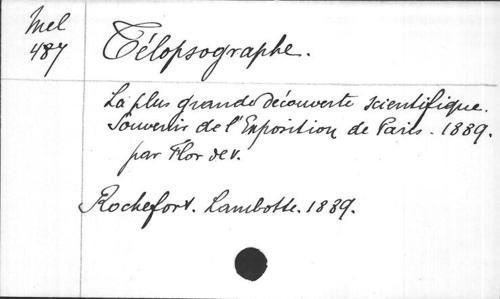 Mel
487
Télopsographe.
La plus grande découverte scientifique.
Souvenir de l'Exposition de Paris. 1889.
par Flor de v.
Rochefort. Lambotte. 1889.